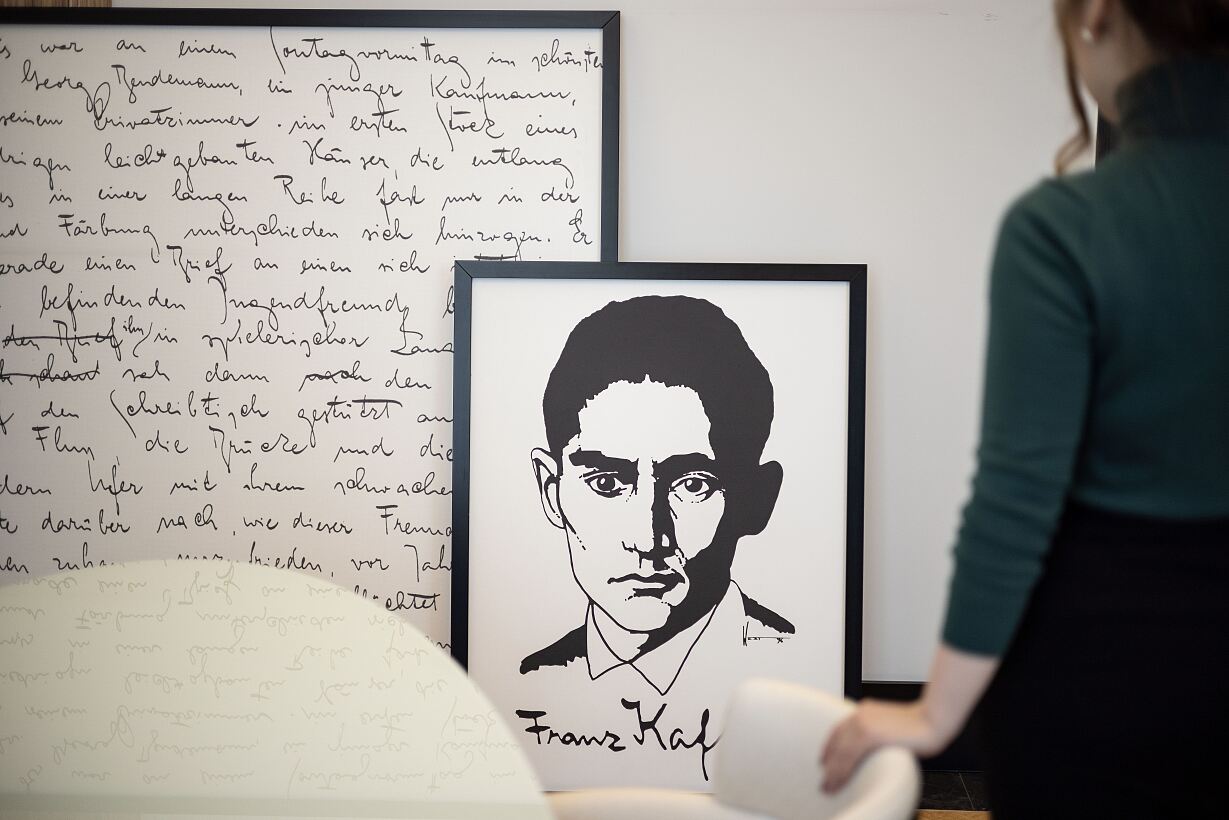 s war an einem Sontagvormittag im schönsten
Georg Bendemann, ein junger Kaufmann,
seinem Privatzimmer im ersten Stock eines
drigen leichtgebauten Häuser, die entlang
es in einer langen Reihe fast nur in der
nd Färbung unterschieden sich hinzogen. Er
erade einen Brief an einen sich
befindenden Jugendfreund b
den Brief ihn in spielerischer Lang
schaut sah dann nach den
f den Schreibtisch gestützt au
Fluß, die Brücke und die
dern Ufer mit ihrem schwachen
te darüber nach, wie dieser Freund
en zuha frieden, vor Jah
flüchtet
Franz Kaf